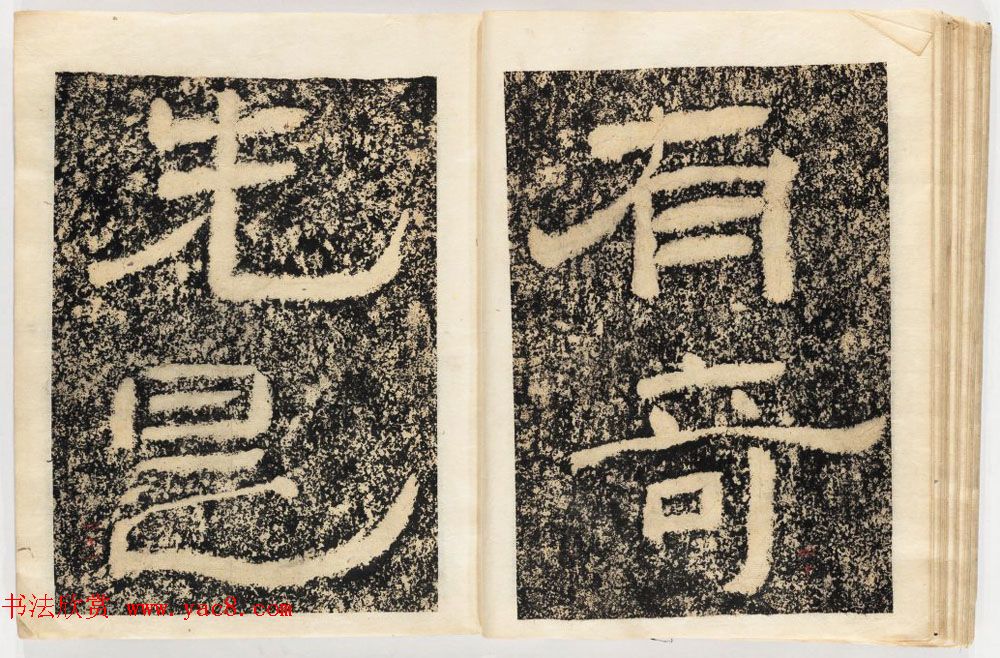 有奇
先
书法欣赏 www.yac8.com